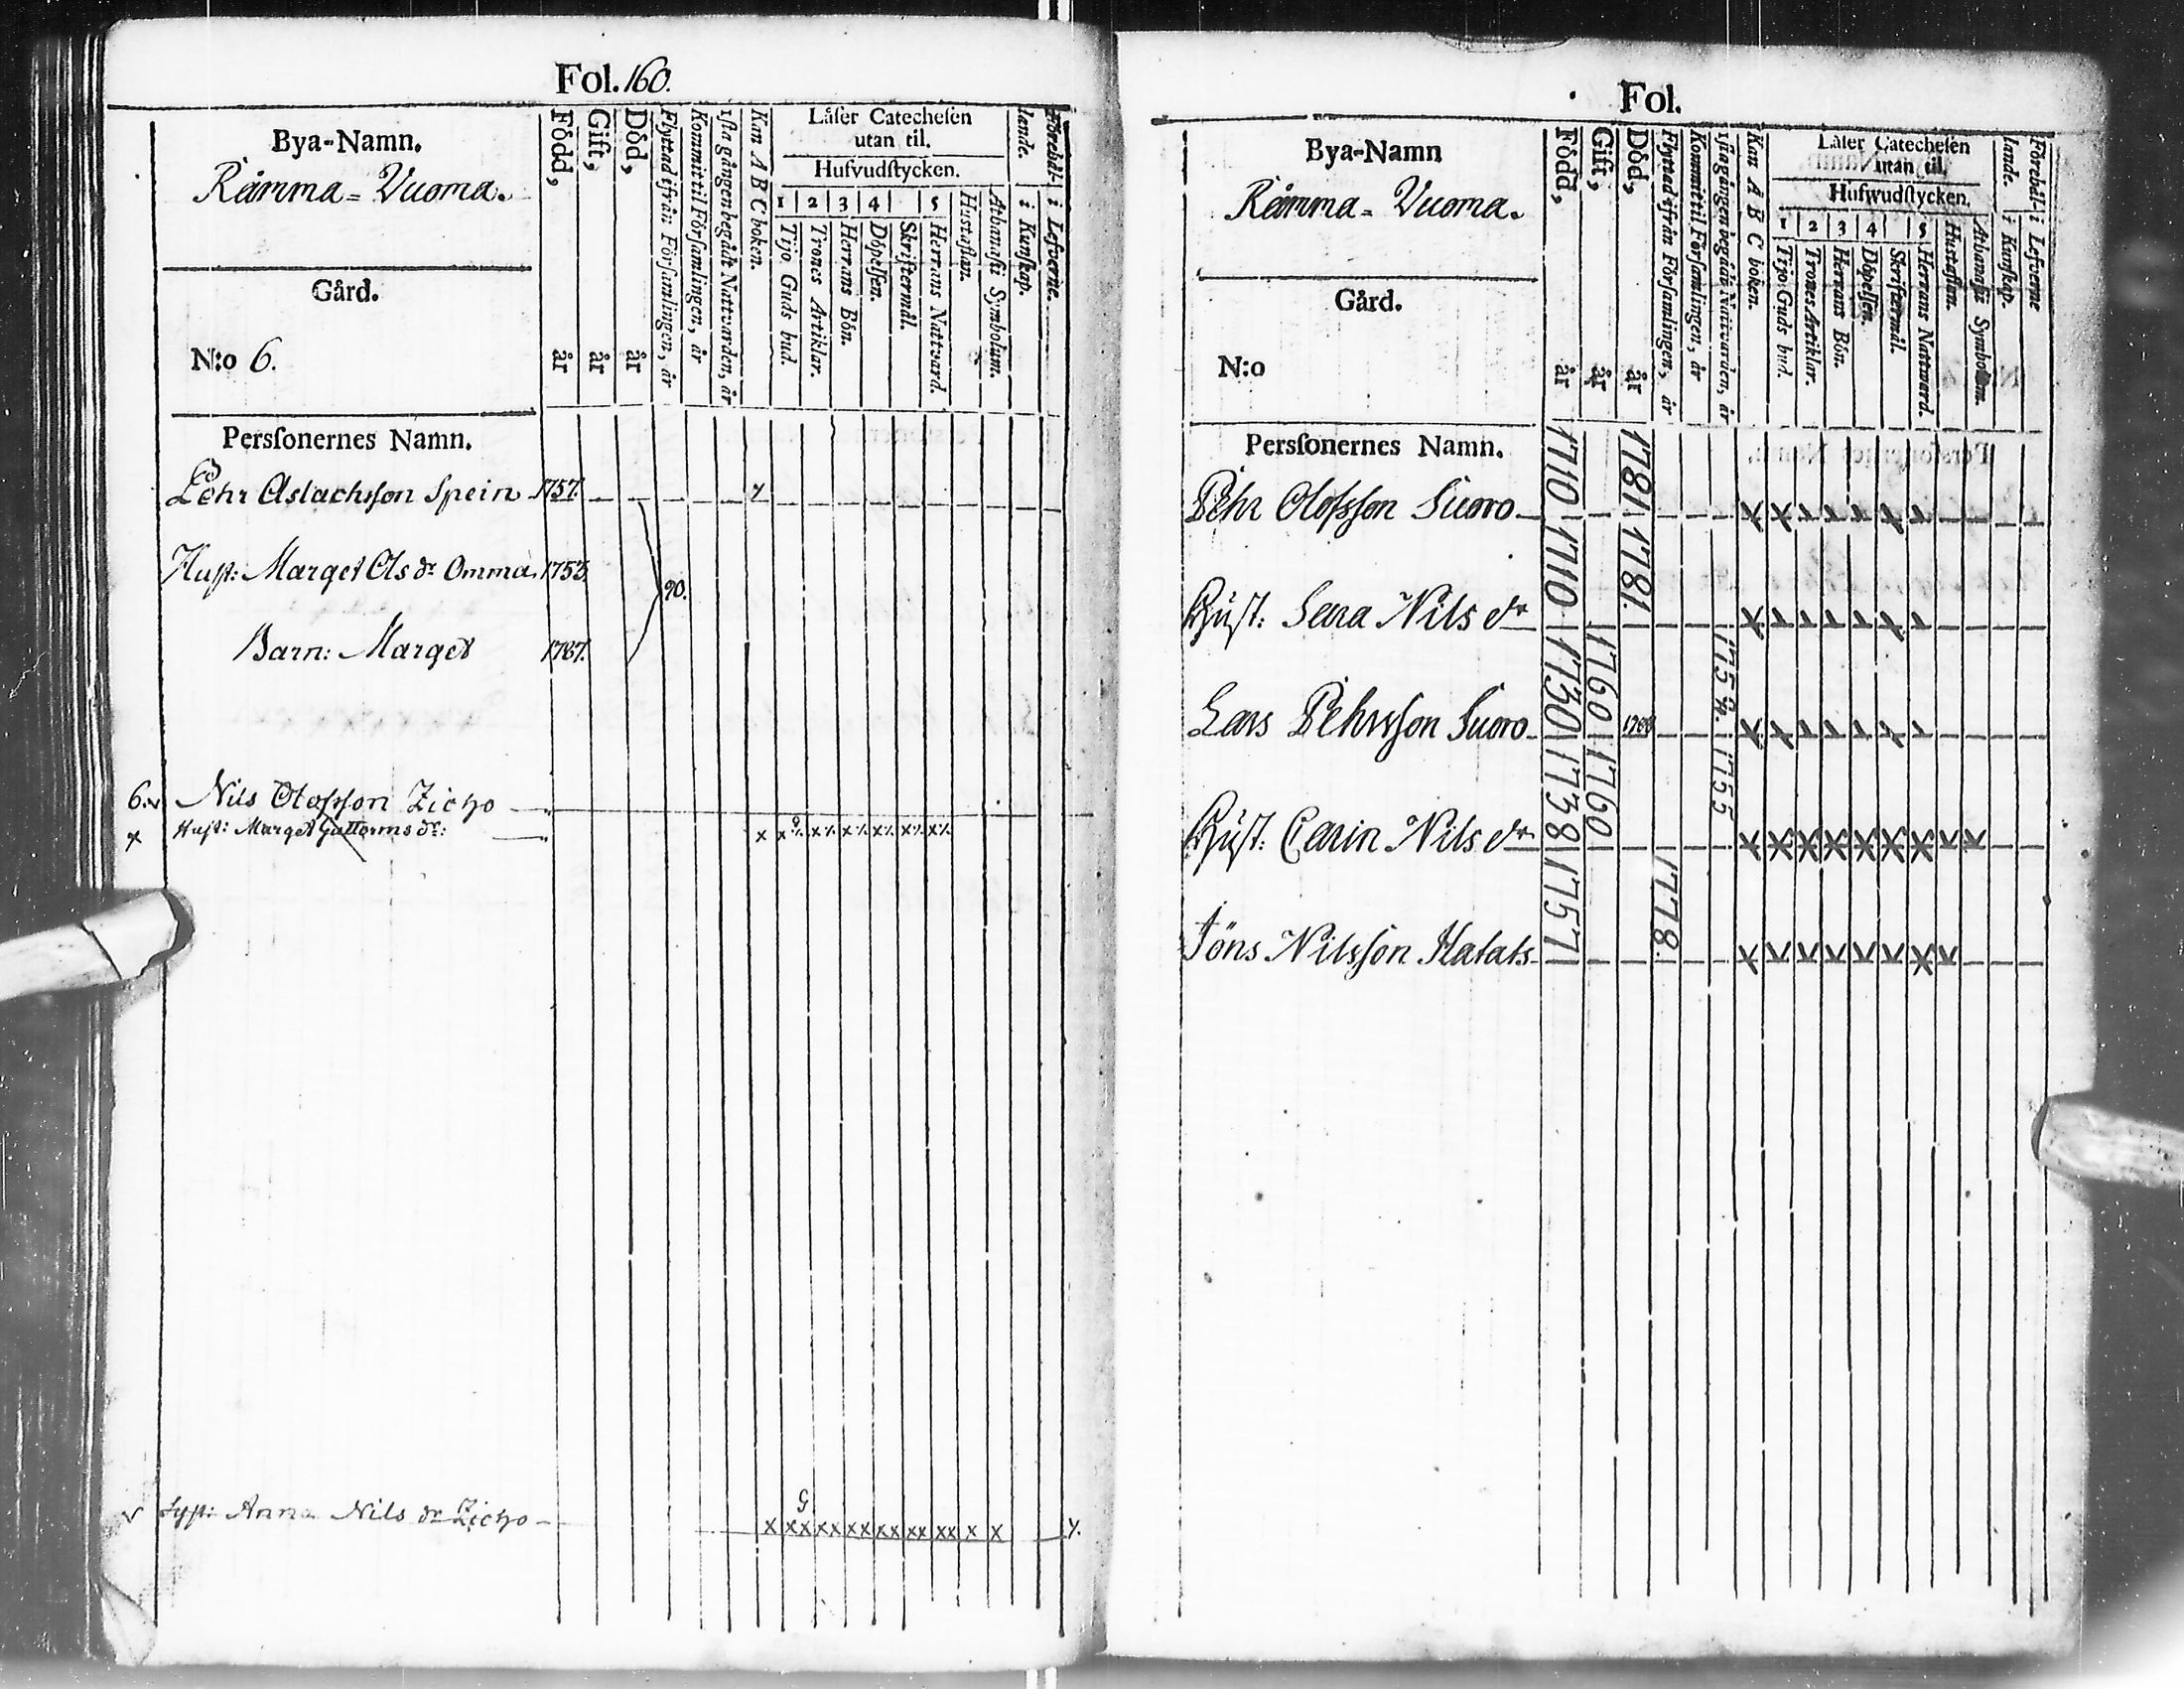 Fol. 160.
Bya-Namn.
Råmma=Vuoma.
Gård.
N:o 6.
Född, år
Gift, år
Död, år
Flyttad ifrån Församlingen, år
Kommit til Församlingen, år
1sta gången begådt Nattvarden, år
Kan A B C boken.
Läser Catechesen
utan til.
Hufvudstycken.
1 2 3 4 5
Tijo Guds bud.
Trones Artiklar.
Herrans Bön.
Döpelsen.
Skriftermål.
Herrans Nattvard.
Hustaflan.
Athanasii Symbolum.
Förebållande.
i Kunskap.
i Lefverne.
Perssonernes Namn.
Pehr Aslachsson Spein 1757.
Hust: Marget Ols dr Omma 1753.
90.
Barn: Marget 1787.
6. Nils Olofsson Zicho
x Hust: Marget Guttorms dr: x x x x x x x x
Anna Nils dr Zicho x xx xx xx xx xx xx x x
Fol.
Bya-Namn
Råmma=Vuoma.
Gård.
N:o
Född, år
Gift, år
Död, år
Flyttad ifrån Församlingen, år
Kommit til Församlingen, år
1sta gången begådt Nattvarden, år
Kan A B C boken.
Läser Catechesen
utan til.
Hufwudstycken.
1 2 3 4 5
Tijo Guds bud.
Trones Artiklar.
Herrans Bön.
Döpelsen.
Skriftermål.
Herrans Nattward.
Hustaflan.
Athanasii Symbolum.
Förebållande.
i Kunskap.
i Lefverne
Perssonernes Namn.
Pehr Olofsson Suoro 1710 1781
Hust: Sara Nils dr 1710 1781.
Lars Pehrsson Suoro 1730 1760 1788
Hust: Carin Nils dr 1738 1760 1755
Jöns Nilsson Hatats 1757 1778.